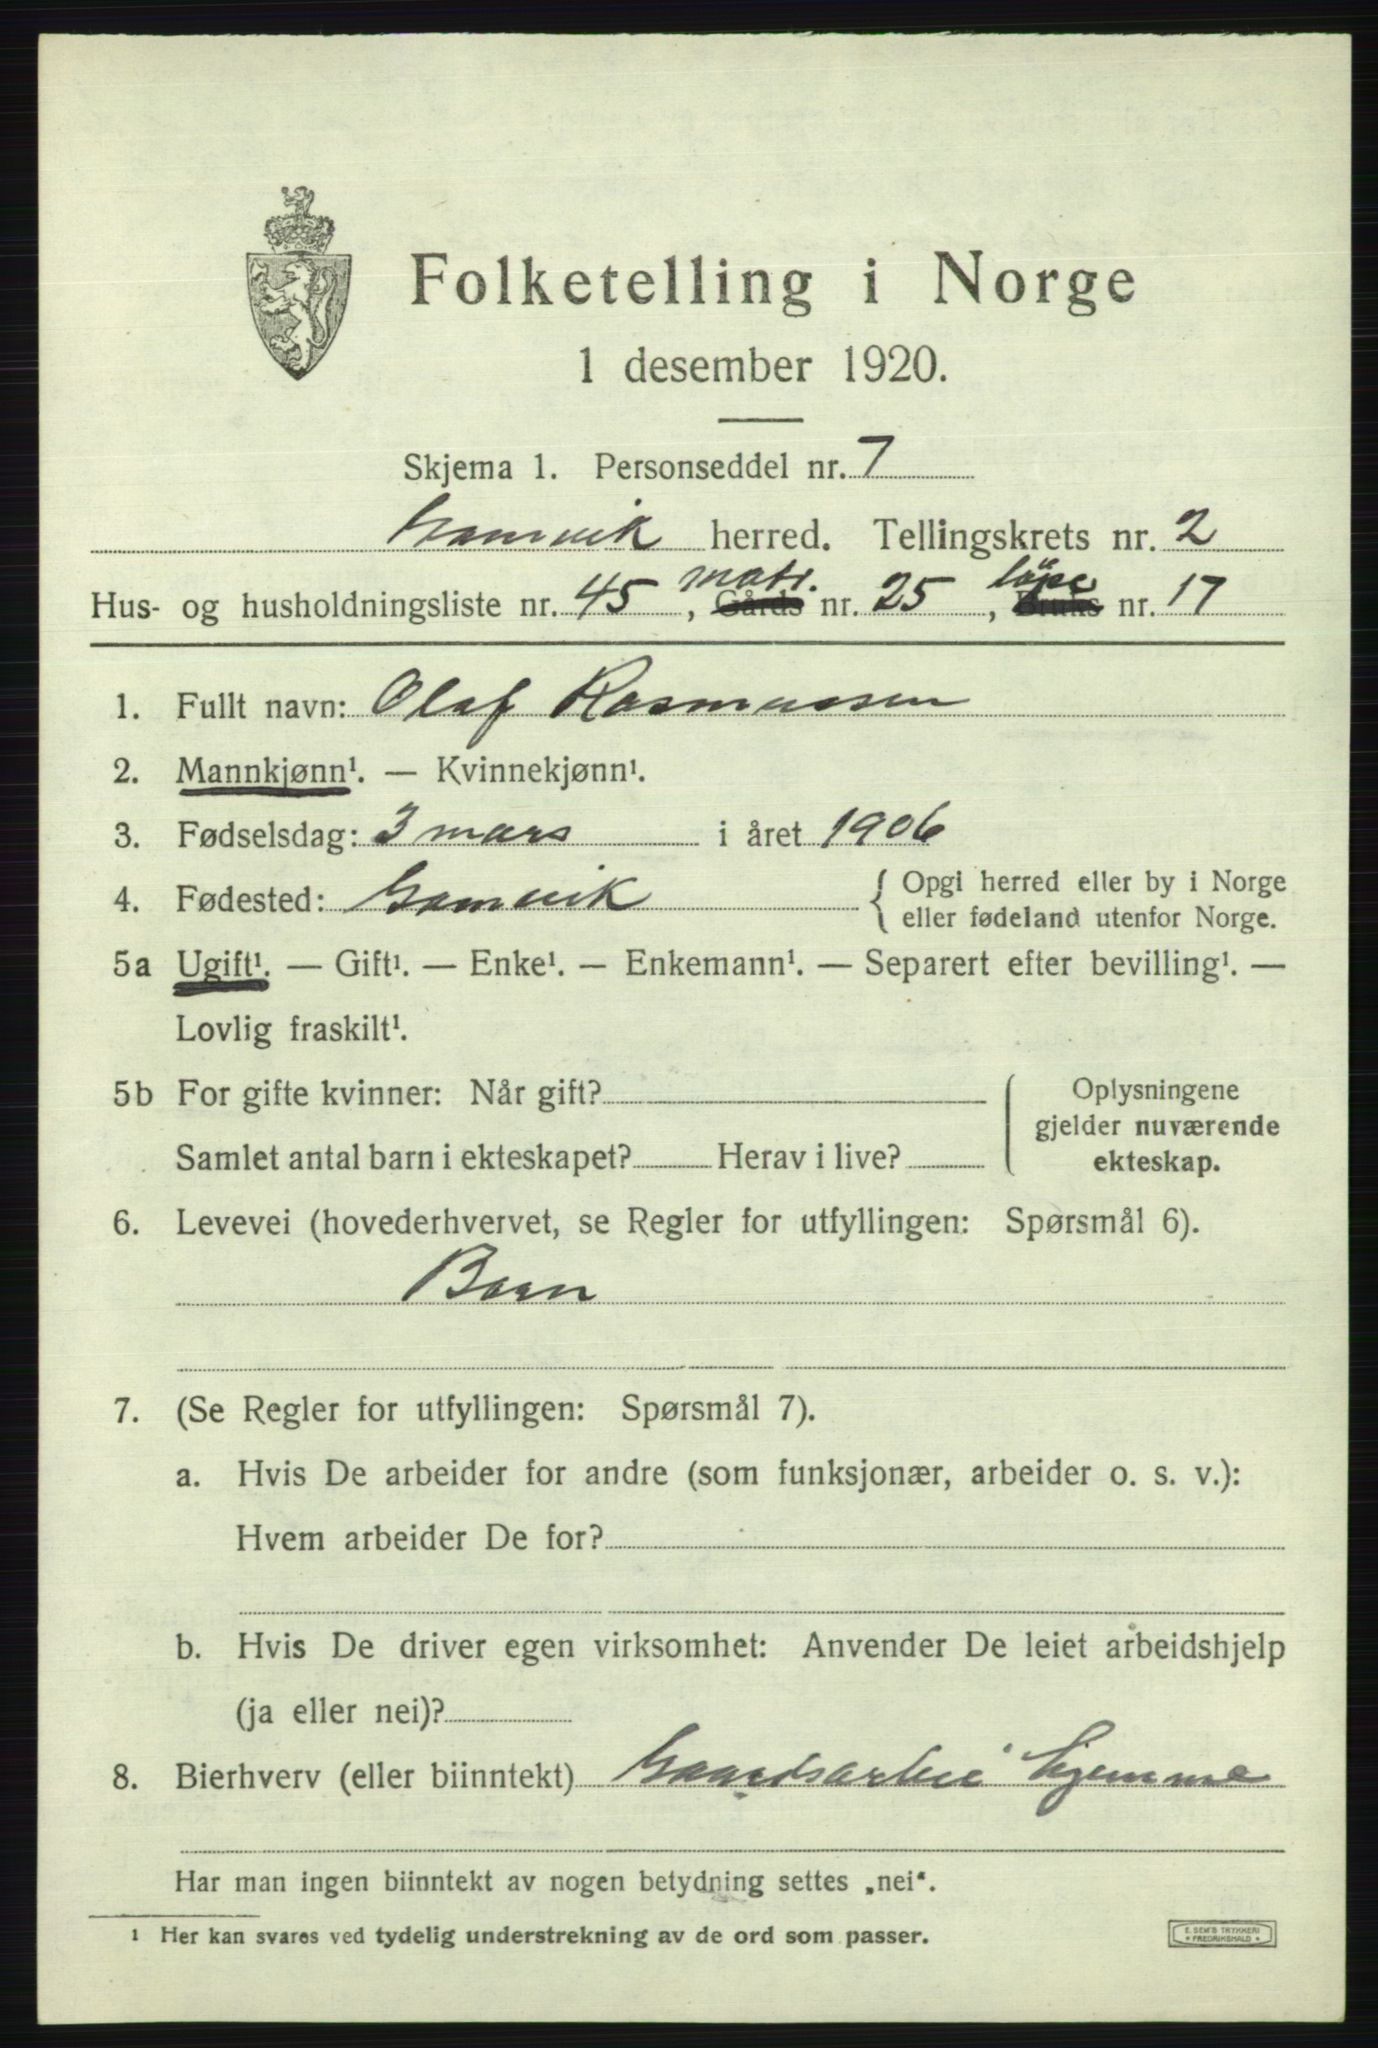 Folketelling i Norge
1 desember 1920.
Skjema 1. Personseddel nr. 7
Gamvik herred. Tellingskrets nr. 2
Hus- og husholdningsliste nr. 45, Gårds matr. nr. 25, Bruks löpe nr. 17
1. Fullt navn: Olaf Rasmussen
2. Mannkjønn¹. — Kvinnekjønn¹.
3. Fødselsdag: 3 mars i året 1906
4. Fødested: Gamvik { Opgi herred eller by i Norge
eller fødeland utenfor Norge.
5a Ugift¹. — Gift¹. — Enke¹. — Enkemann¹. — Separert efter bevilling¹. —
Lovlig fraskilt¹.
5b For gifte kvinner: Når gift?
Samlet antal barn i ekteskapet? Herav i live?
Oplysningene
gjelder nuværende
ekteskap.
6. Levevei (hovederhvervet, se Regler for utfyllingen: Spørsmål 6).
Barn
7. (Se Regler for utfyllingen: Spørsmål 7).
a. Hvis De arbeider for andre (som funksjonær, arbeider o. s. v.):
Hvem arbeider De for?
b. Hvis De driver egen virksomhet: Anvender De leiet arbeidshjelp
(ja eller nei)?
8. Bierhverv (eller biinntekt) Gaardsarbei hjemme
Har man ingen biinntekt av nogen betydning settes „nei“.
1 Her kan svares ved tydelig understrekning av de ord som passer.
E. SEM'S TRYKKERI
* FREDRIKSHALD *